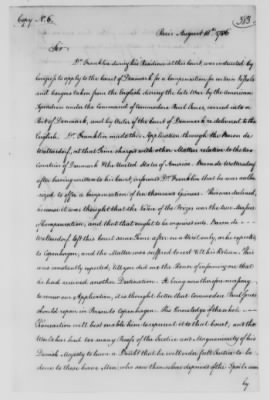 Copy N. 6.
313
Paris August 16th 1786
Sir
Dr Franklin during his Residence at this court was instructed by
Congress to apply to the Court of Denmark for a compensation for certain Vessels
and Cargoes taken from the English during the late War by the American
Squadron under the Command of Commodore Paul Jones, carried into a
Port of Denmark, and by Order of the Court of Denmark re delivered to the
English. Dr Franklin made this Application through the Baron de
Waltersdorf, at that Time charged with other Matters relative to the two
Countries of Denmark & the United States of America. Baron de Waltersdorf
after having written to his Court, informed Dr Franklin that he was autho-
rized to offer a Compensation of ten thousand Guineas. This was declined,
because it was thought that the Value of the Prizes was the true Measure
of Compensation, and that that ought to be inquired into. Baron de
Waltersdorf left this Court some Time after on a Visit only, as he expected
to Copenhagen, and the Matter was suffered to rest till his Return. This
was constantly expected, till you did me the Honor of informing me that
he had received another Destination. It being now therefore necessary
to renew our Application, it is thought better that Commodore Paul Jones
should repair in Person to Copenhagen. His Knowledge of the whole
Transaction will best enable him to represent it to that Court, and the
World has had too many Proofs of the Justice and Magnanimity of his
Danish Majesty to leave a Doubt that he will order full Justice to be
done to those brave Men who saw themselves deprived of the Spoils won
by